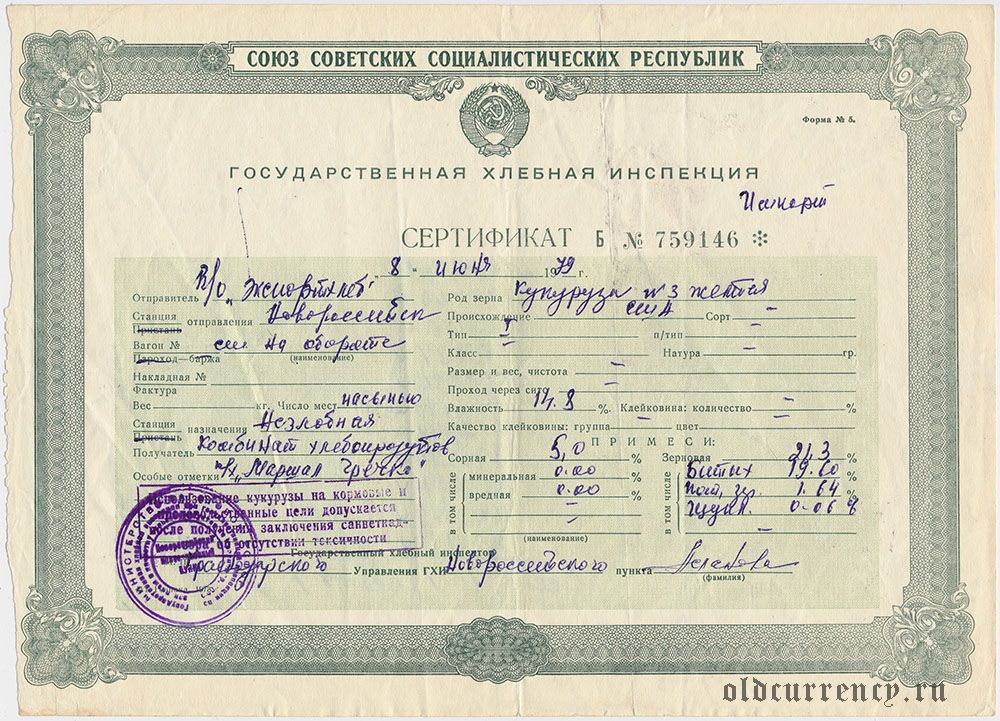 СОЮЗ СОВЕТСКИХ СОЦИАЛИСТИЧЕСКИХ РЕСПУБЛИК
Форма № 5.
ГОСУДАРСТВЕННАЯ ХЛЕБНАЯ ИНСПЕКЦИЯ
Импорт
СЕРТИФИКАТ Б № 759146
„8“ июня 1979 г.
Отправитель В/О „Экспортхлеб“
Станция
Пристань отправления Новороссийск
Вагон № см. на обороте
Пароход—баржа (наименование)
Накладная №
Фактура
Вес — кг. Число мест насыпью
Станция
Пристань назначения Незлобная
Получатель Комбинат хлебопродуктов
Особые отметки т/х „Маршал Гречко“
Использование кукурузы на кормовые и
продовольственные цели допускается
после получения заключения санветнад-
зора об отсутствии токсичности
Род зерна Кукуруза № 3 желтая
Происхождение США Сорт —
Тип — п/тип —
Класс — Натура — гр.
Размер и вес, чистота —
Проход через сито —
Влажность 14.8 %. Клейковина: количество — %
Качество клейковины: группа — цвет —
ПРИМЕСИ:
Сорная 5,0 %
в том числе
минеральная 0.00 %
вредная 0.00 %
— %
(наименование)
Зерновая 21.3 %
в том числе
Битых 19.60 %
1.64 %
0.06 %
Государственный хлебный инспектор
Краснодарского Управления ГХИ Новороссийского пункта
(фамилия)
oldcurrency.ru